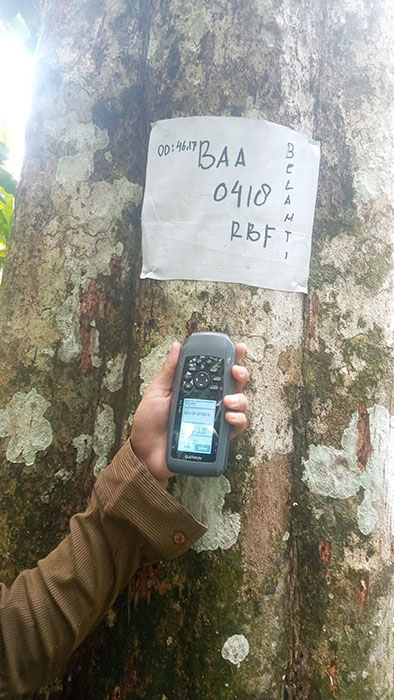 OD: 46,17
BAA
0418
RBF
BELAHTI
GARMIN